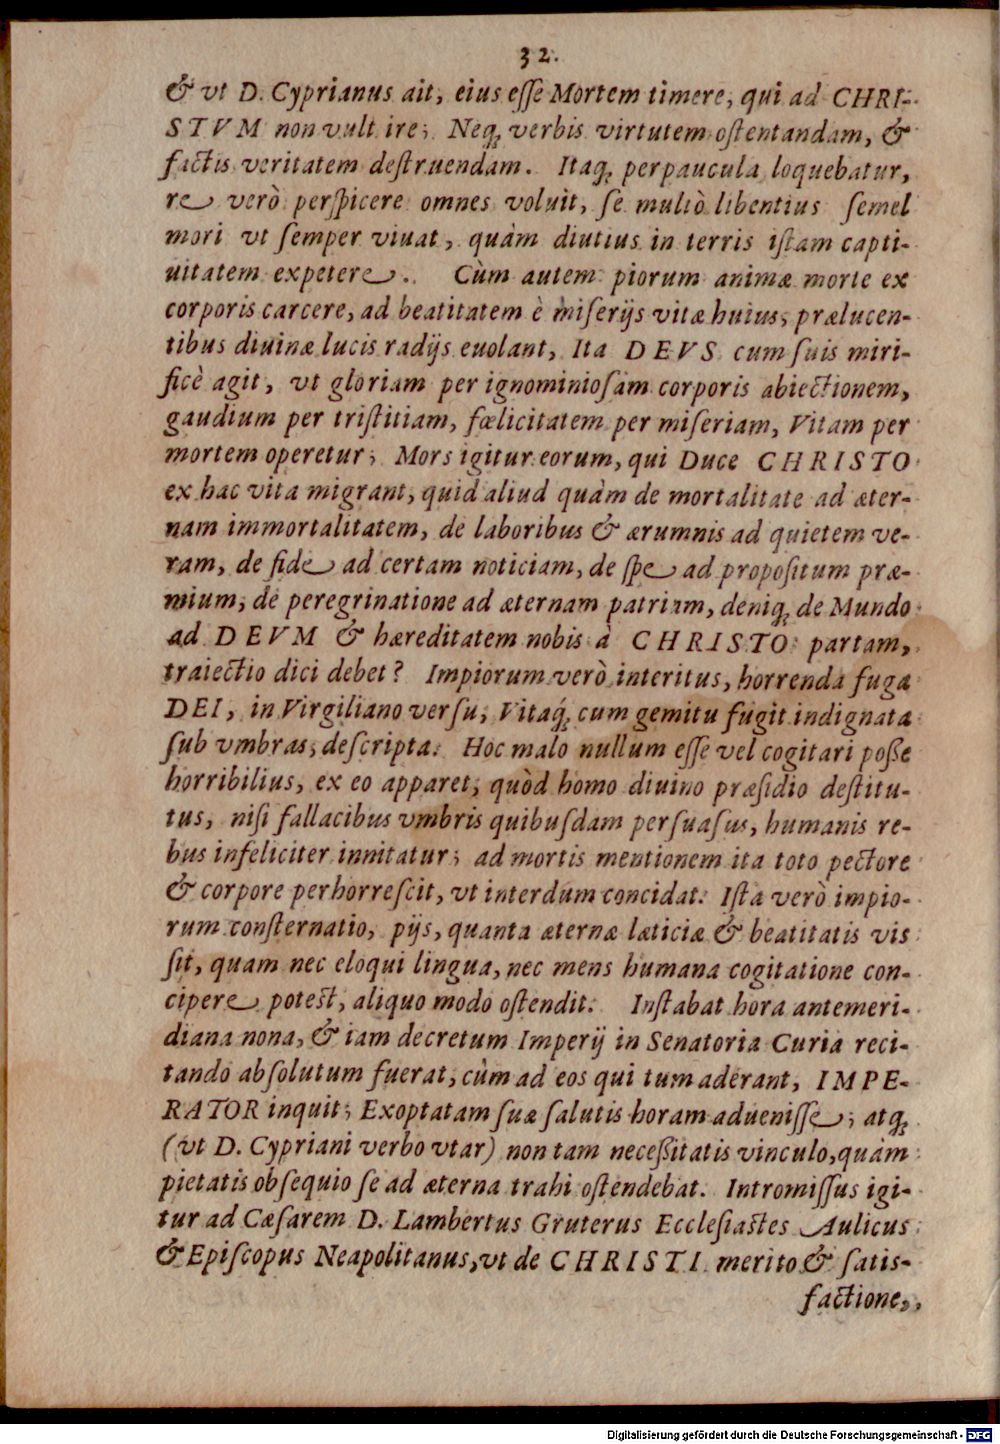 32.
& vt D. Cyprianus ait, eius eſſe Mortem timere, qui ad CHRI-
STVM non vult ire; Neq; verbis virtutem oſtentandam, &
factis veritatem deſtruendam. Itaq; perpaucula loquebatur,
re verò perſpicere omnes voluit, ſe multò libentius ſemel
mori vt ſemper viuat, quàm diutius in terris iſtam capti-
uitatem expetere. Cùm autem piorum animæ morte ex
corporis carcere, ad beatitatem è miſerijs vitæ huius, prælucen-
tibus diuinæ lucis radijs euolant, Ita DEVS cum ſuis miri-
ficè agit, vt gloriam per ignominioſam corporis abiectionem,
gaudium per triſtitiam, fœlicitatem per miſeriam, Vitam per
mortem operetur; Mors igitur eorum, qui Duce CHRISTO
ex hac vita migrant, quid aliud quàm de mortalitate ad æter-
nam immortalitatem, de laboribus & ærumnis ad quietem ve-
ram, de fide ad certam noticiam, de ſpe ad propoſitum præ-
mium, de peregrinatione ad æternam patriam, deniq; de Mundo
ad DEVM & hæreditatem nobis à CHRISTO partam,
traiectio dici debet? Impiorum verò interitus, horrenda fuga
DEI, in Virgiliano verſu, Vitaq́; cum gemitu fugit indignata
ſub vmbras, deſcripta. Hoc malo nullum eſſe vel cogitari poße
horribilius, ex eo apparet, quòd homo diuino præſidio deſtitu-
tus, niſi fallacibus vmbris quibuſdam perſuaſus, humanis re-
bus infeliciter innitatur; ad mortis mentionem ita toto pectore
& corpore perhorreſcit, vt interdum concidat. Iſta verò impio-
rum conſternatio, pijs, quanta æternæ læticiæ & beatitatis vis
ſit, quam nec eloqui lingua, nec mens humana cogitatione con-
cipere potest, aliquo modo oſtendit. Inſtabat hora antemeri-
diana nona, & iam decretum Imperij in Senatoria Curia reci-
tando abſolutum fuerat, cùm ad eos qui tum aderant, IMPE-
RATOR inquit; Exoptatam ſuæ ſalutis horam adueniſſe; atq;
(vt D. Cypriani verbo vtar) non tam neceßitatis vinculo, quàm
pietatis obſequio ſe ad æterna trahi oſtendebat. Intromiſſus igi-
tur ad Cæſarem D. Lambertus Gruterus Eccleſiastes Aulicus
& Epiſcopus Neapolitanus, vt de CHRISTI merito & ſatis-
factione,
Digitalisierung gefördert durch die Deutsche Forschungsgemeinschaft - DFG